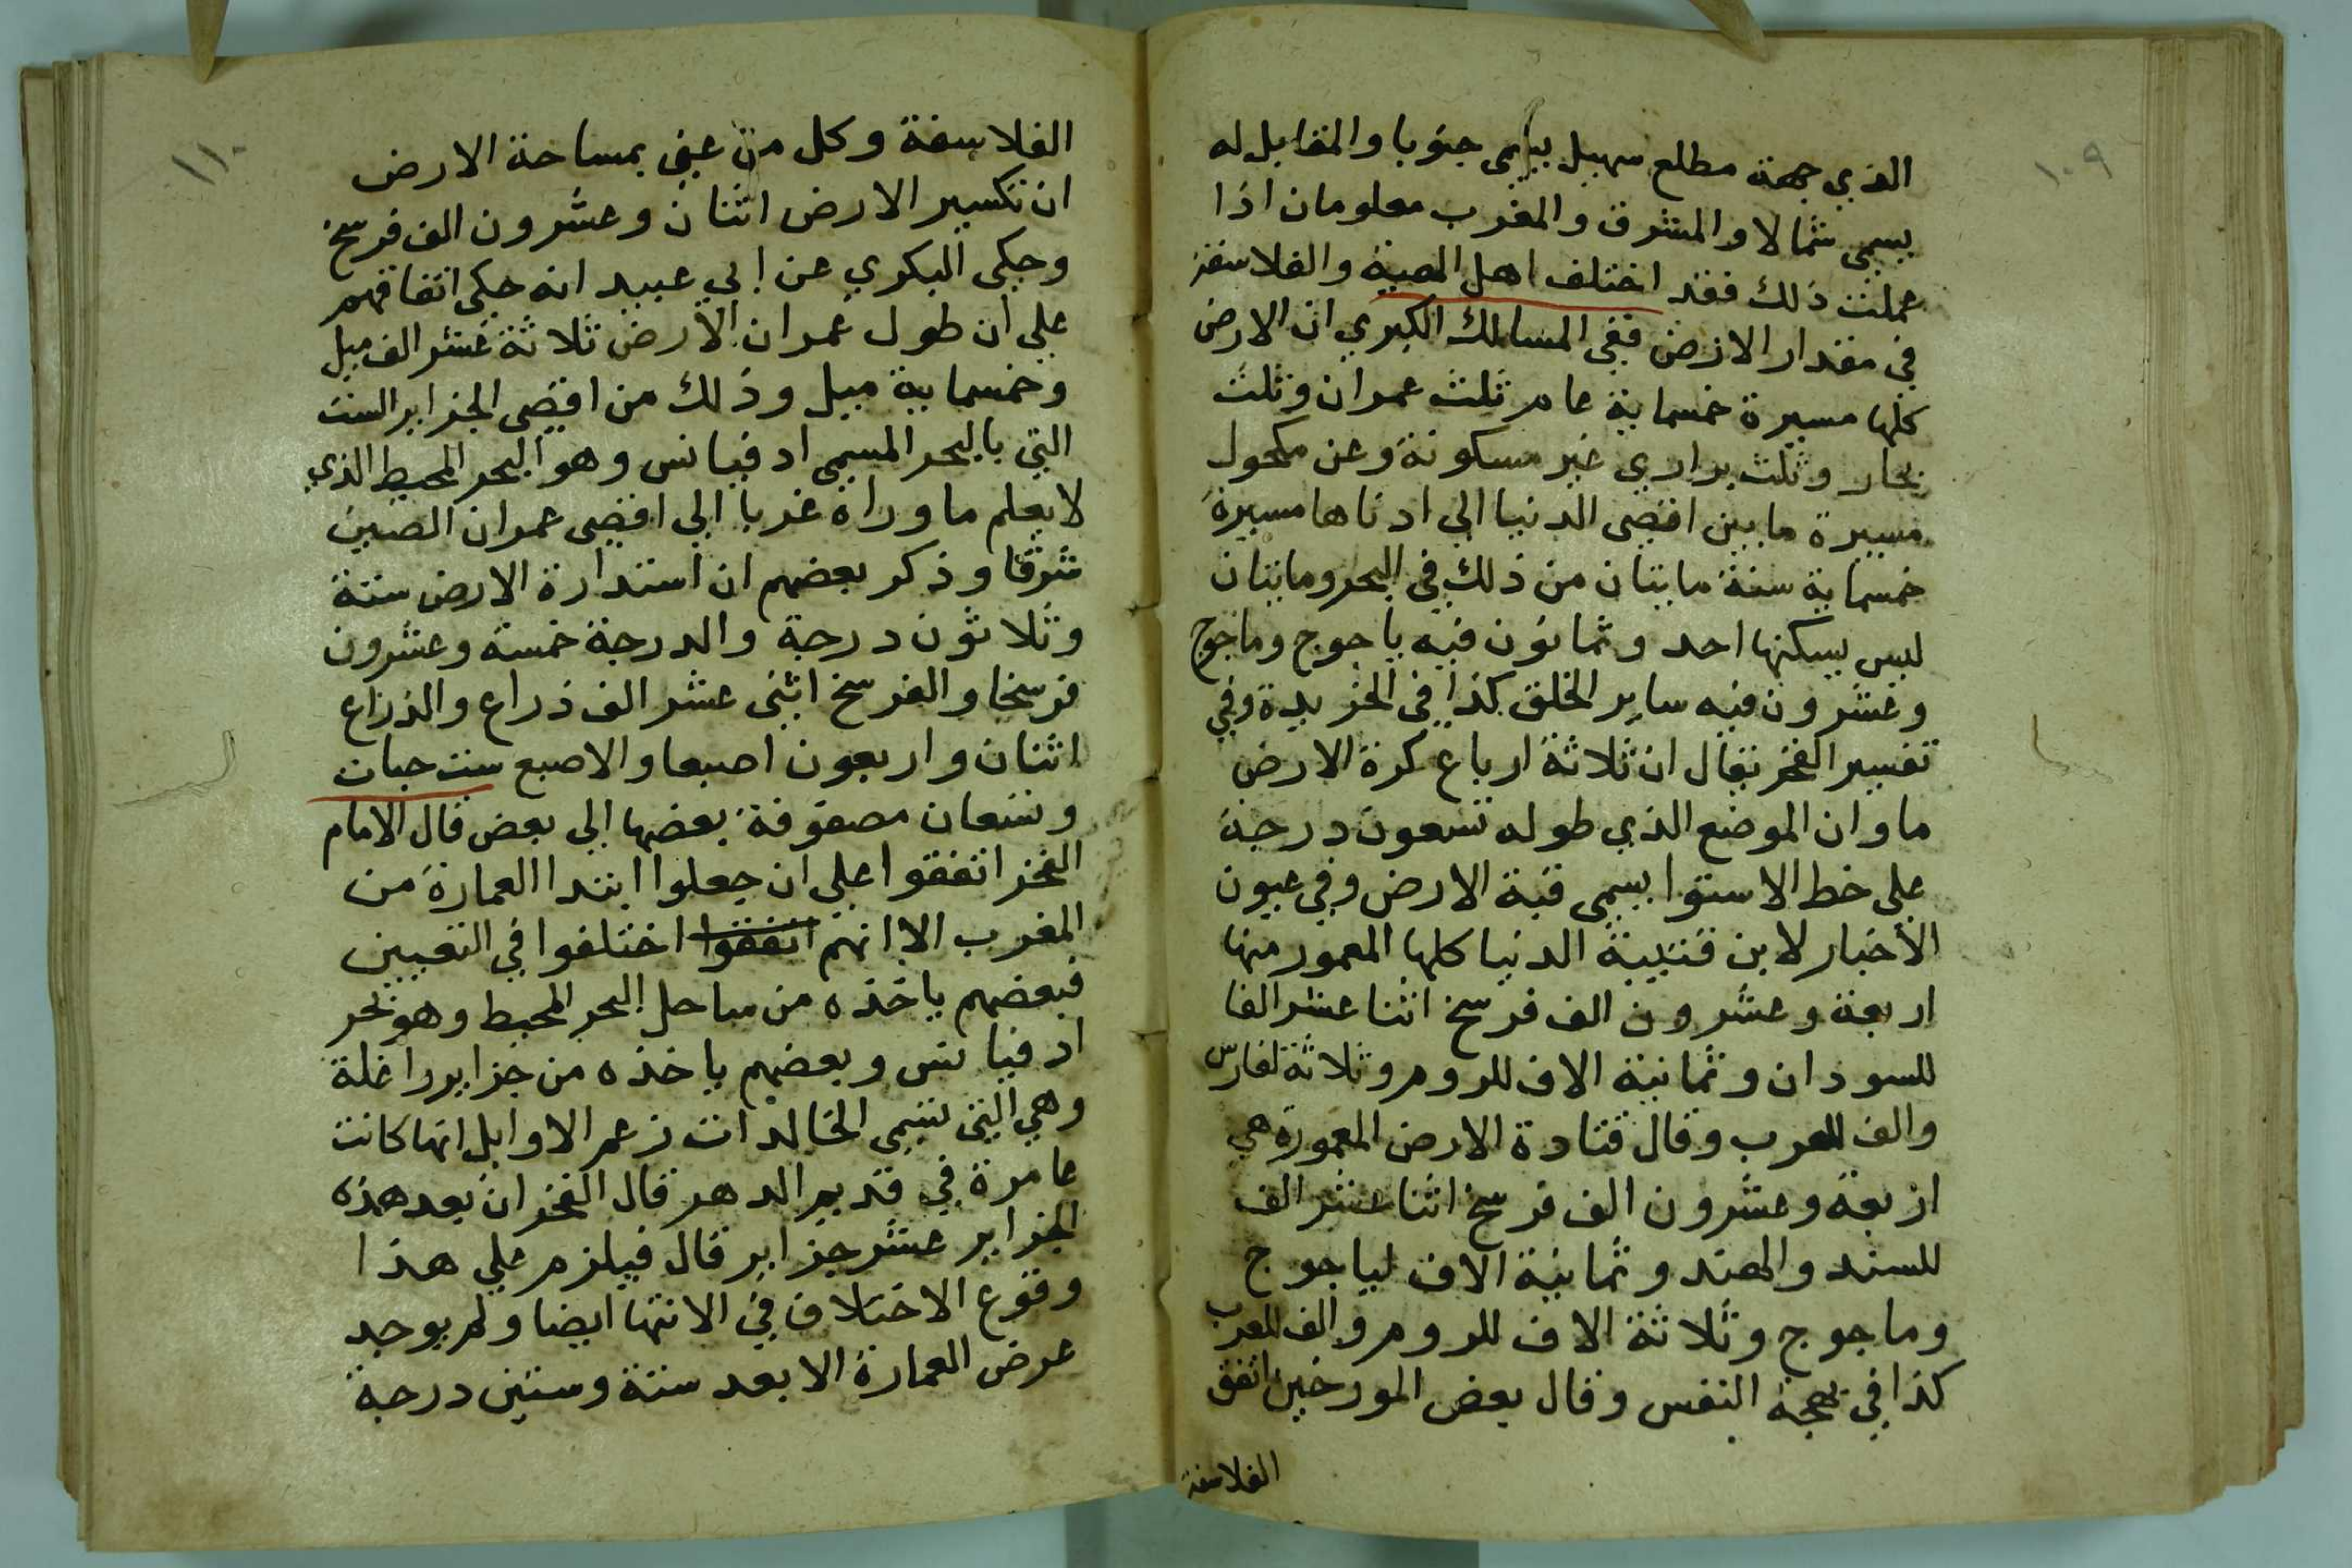 ١٠٩
الذي جهة مطلع سهيل يسمى جنوبا والمقابل له
يسمى شمالا والمشرق والمغرب معلومان اذا
عملت ذلك فقد اختلف اهل الهيية والفلاسفة
في مقدار الارض ففي المسالك الكبري ان الارض
كلها مسيرة خمسماية عام ثلث عمران وثلث
بحار وثلث براري غير مسكونة وعن مكحول
مسيرة ما بين اقصى الدنيا الي ادناها مسيرة
خمسماية سنة مايتان من ذلك في البحر ومايتان
ليس يسكنها احد وثمانون فيه ياجوج وماجوج
وعشرون فيه ساير الخلق كذا في الخريدة وفي
تفسير الفخر يقال ان ثلاثة ارباع كرة الارض
ما وان الموضع الذي طوله تسعون درجة
علي خط الاستوا يسمى قبة الارض وفي عيون
الأخبار لابن قتيبة الدنيا كلها المعمور منها
اربعة وعشرون الف فرسخ اثنا عشر الفا
للسودان وثمانية الاف للروم وثلاثة لفارس
والف للعرب وقال قتادة الارض المعمورة هي
اربعة وعشرون الف فرسخ اثنا عشر الف
للسند والهند وثمانية الاف لياجوج
وماجوج وثلاثة الاف للروم والف للعرب
كذا في بهجة النفس وقال بعض المورخين اتفق
الفلاسفة
١١٠
الفلاسفة وكل من عني بمساحة الارض
ان تكسير الارض اثنان وعشرون الف فرسخ
وحكى البكري عن ابي عبيد انه حكي اتفاقهم
علي ان طول عمران الأرض ثلاثة عشر الف ميل
وخمسماية ميل وذلك من اقصى الجزاير الست
التي بالبحر المسمى ادفيانس وهو البحر المحيط الذي
لا يعلم ما وراه غربا الي اقصى عمران الصين
شرقا وذكر بعضهم ان استدارة الارض ستة
وثلاثون درجة والدرجة خمسة وعشرون
فرسخا والفرسخ اثنى عشر الف ذراع والذراع
اثنان واربعون اصبعا والاصبع ست حبات
وتسعان مصفوفة بعضها الي بعض قال الامام
الفخر اتفقوا علي ان جعلوا ابتدا العمارة من
المغرب الا انهم اتفقوا اختلفوا في التعيين
فبعضهم ياخذه من ساحل البحر المحيط وهو بحر
ادفيانس وبعضهم ياخذه من جزاير راغلة
وهي التي تسمى الخالدات زعم الاوايل انها كانت
عامرة في قديم الدهر قال الفخر ان بعد هذه
الجزاير عشر جزاير قال فيلزم علي هذا
وقوع الاختلاف في الانتها ايضا ولم يوجد
عرض العمارة الا بعد ستة وستين درجة